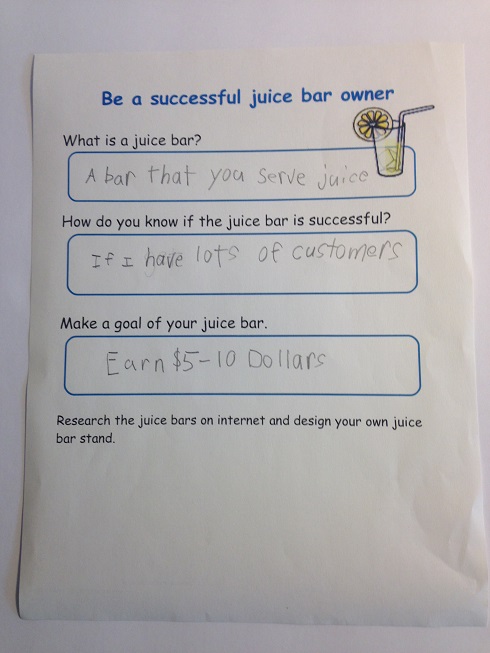 Be a successful juice bar owner
What is a juice bar?
A bar that you serve juice
How do you know if the juice bar is successful?
If I have lots of customers
Make a goal of your juice bar.
Earn $5-10 Dollars
Research the juice bars on internet and design your own juice
bar stand.